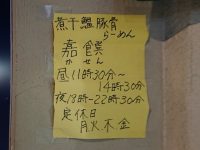 煮干鰮豚骨
らーめん
嘉饌
かせん
昼11時30分〜
14時30分
夜18時-22時30分
定休日
月火木金